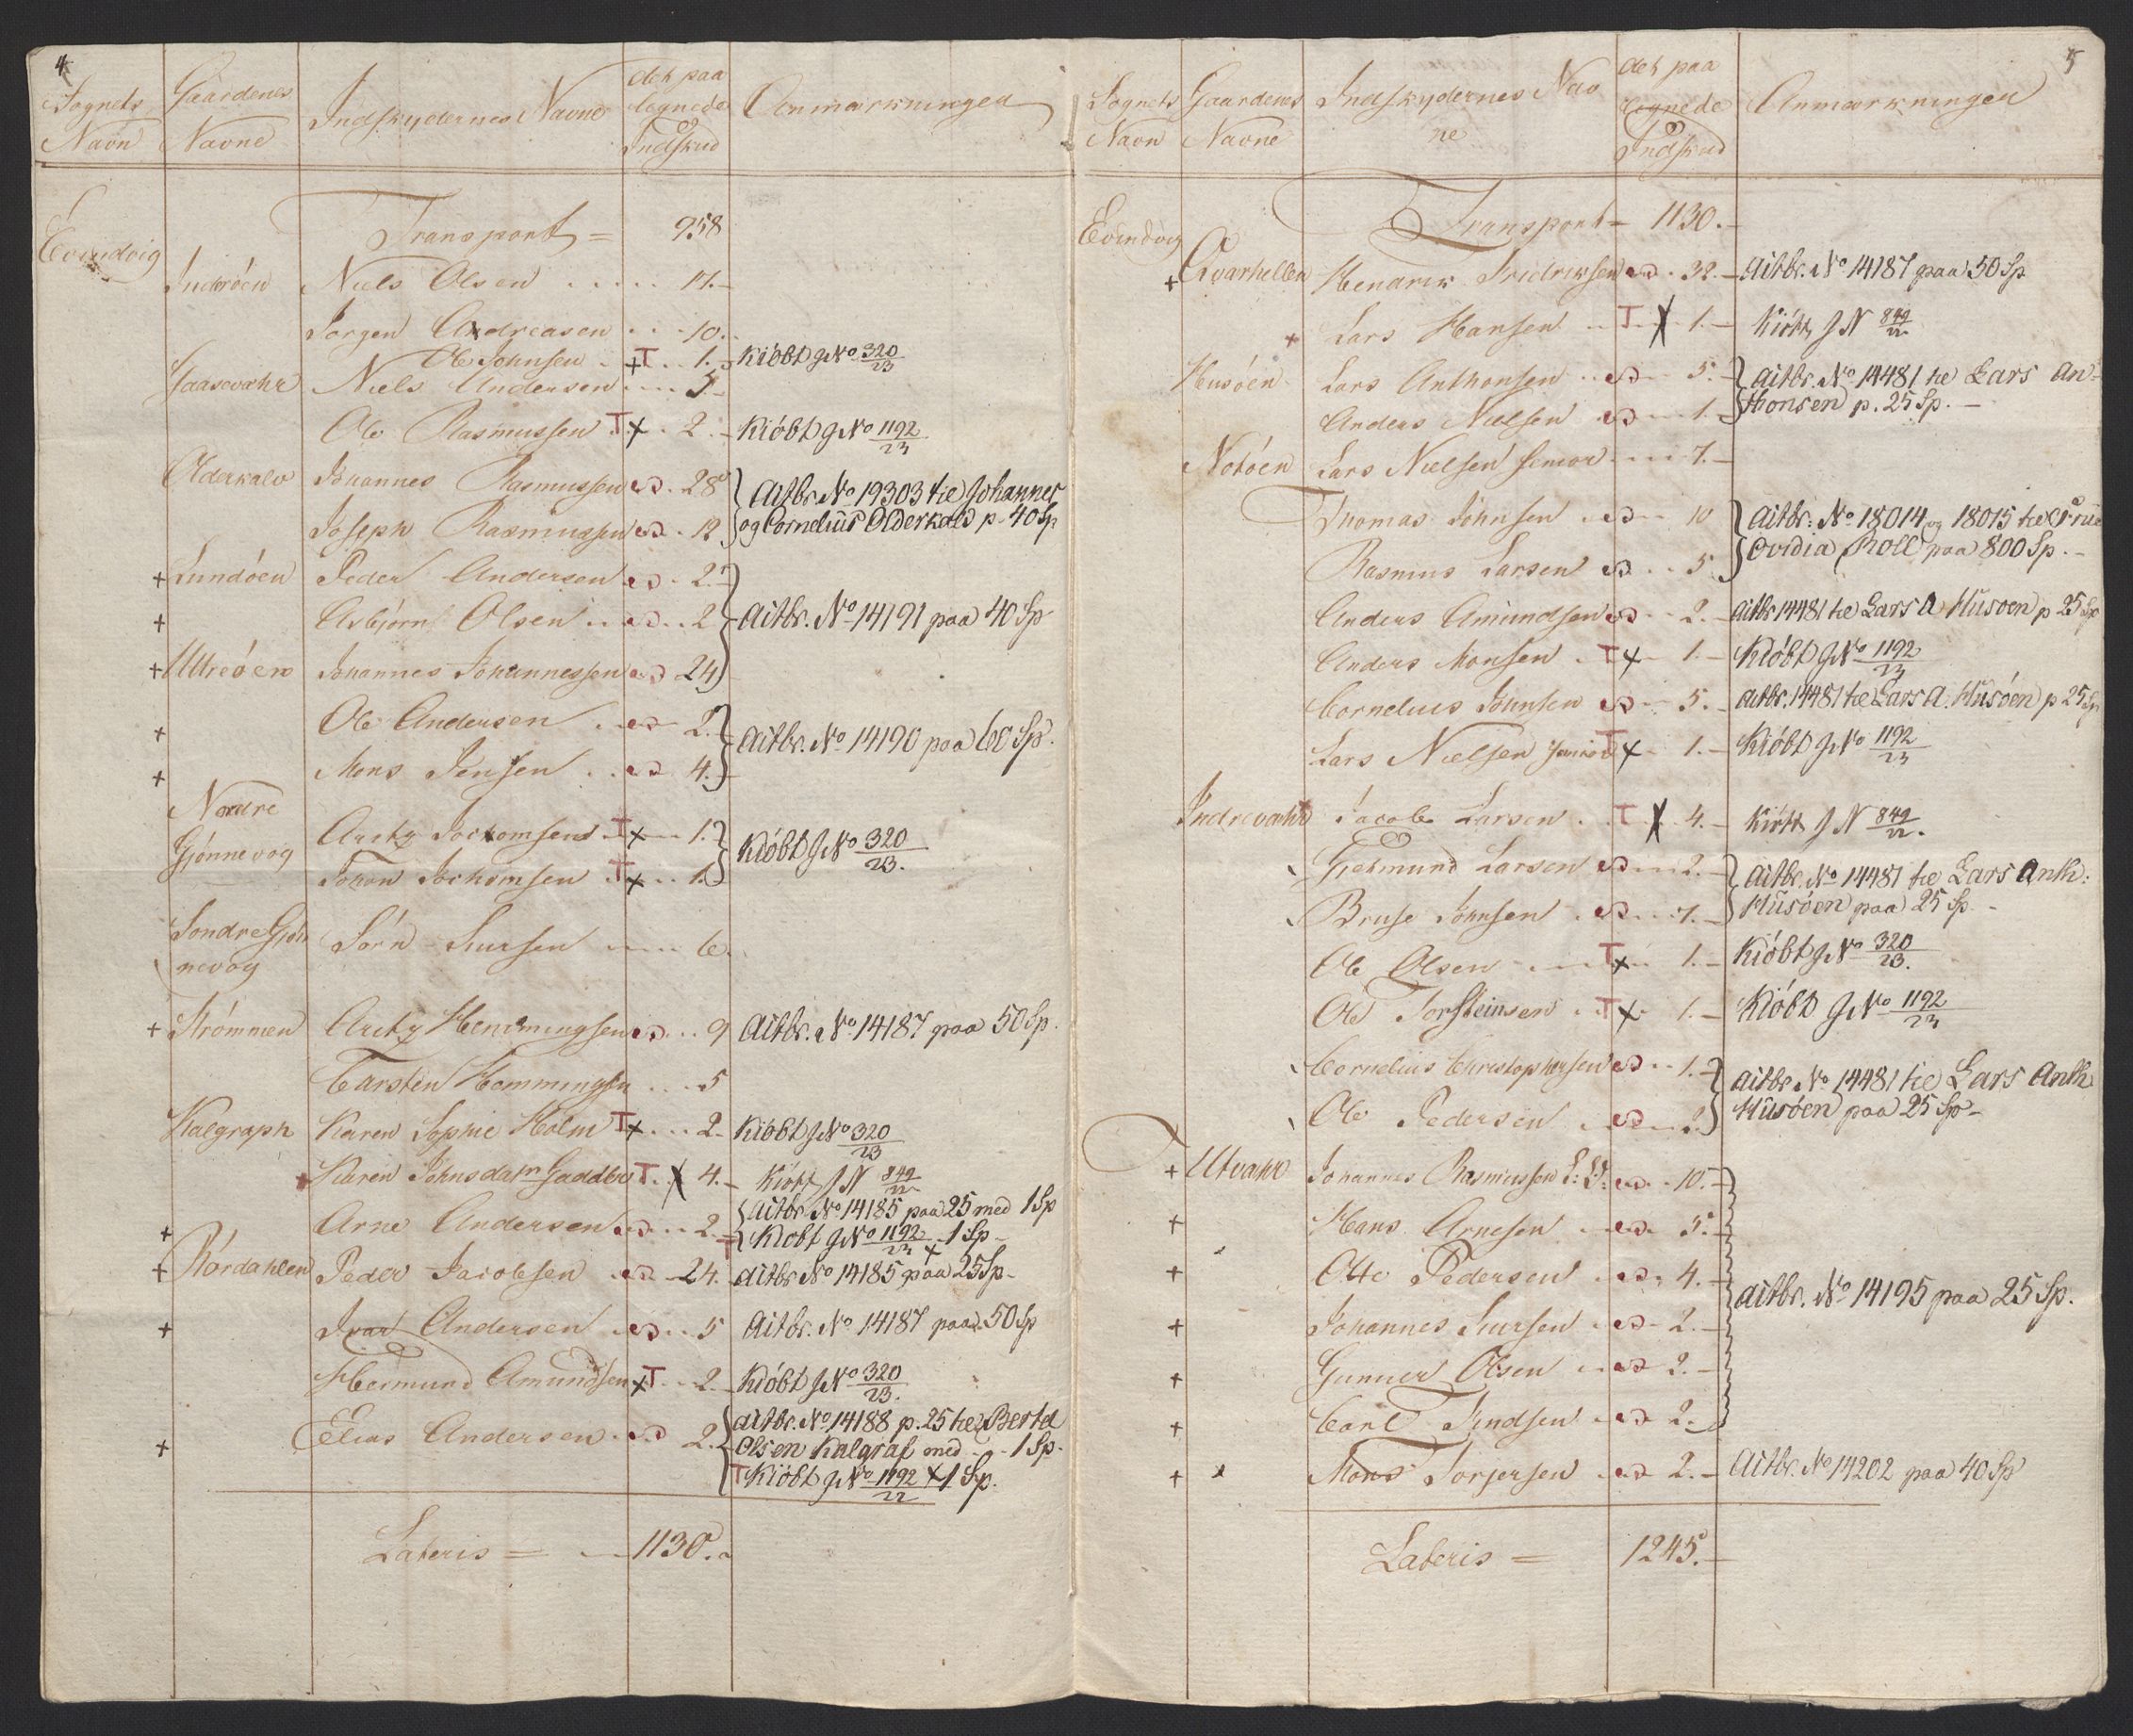 4
Sognets Navn | Gaardenes Navne | Indskydernes Navne | det paa lignede Indskud | Anmærkninger
Transport = 958
Evindvig
Inderöen Niels Olsen 17.
Jörgen Andreasen 10.
Ole Johnsen +T 1. Kiöbt J No 320/23
Gaasevahr Niels Andersen 5.
Ole Rasmussen T x 2. Kiöbt J No 1192/23
Olderkalv Johannes Rasmussen 28 Aitbr. No 19303 til Johannes
Joseph Rasmussen 12 og Cornelius Olderkald p. 40 Sp
+ Lundöen Peder Andersen 2.
+ Asbjörn Olsen 2 Aitbr. No 14191 paa 40 Sp
+ Uttreöen Johannes Johannessen 24
+ Ole Andersen 2. Aitbr. No 14190 paa 60 Sp.
+ Mons Jensen 4.
Nordre
Gjönnevog Arctz Jochomsen T x 1. Kiöbt J No 320/23.
Johan Jochomsen T x 1.
Sondre Gjön
nevog Sörn Siursen 6.
+ Strömmen Arctz Hemmingsen 9 Aitbr. No 14187 paa 50 Sp.
Carsten Hemmingsen 5
Kalgraph Karen Sophie Holm T x 2. Kiöbt J No 320/23
Karen Johnsdatr Gadders T. X 4. Kiött J N 849/22
+ Arne Andersen 2 Aitbr. No 14185 paa 25 med 1 Sp
T Kiobt J No 1192/23 x 1 Sp
+ Rördahlen Peder Jacobsen 24. Aitbr No 14185 paa 25 Sp
+ Ivar Andersen 5 Aitbr. No 14187 paa 50 Sp
Hermund Amundsen x T 2. Kiöbt J No 320/23.
+ Elias Andersen 2. aitbr. No 14188 p. 25 til Bertel
Olsen Kalgraf med 1 Sp.
T Kiöbt J No 1192/22 x 1 Sp.
Lateris = 1130.
5
Sognets Navn | Gaardenes Navne | Indskydernes Nav ne | det paa lignede Indskud | Anmærkninger
Transport = 1130.
Evindvig
+ Qvarhellen Henarik Fridriksen 32. Aitbr. No 14187 paa 50 Sp
+ Lars Hansen T X 1. Kiött J N 849/22
Husöen Lars Anthonsen 5. aitbr. No 14481 til Lars An-
Anders Nielsen 1. thonsen p. 25 Sp.
Notöen Lars Nielsen senior 7.
Thomas Johnsen 10 Aitbr. No 18014 og 18015 til Frue
Rasmus Larsen 5 Ovidia Roll paa 800 Sp.
Anders Amundsen 2. aitbr 14481 til Lars A Husoen p 25 Sp
Anders Monsen T x 1. Kiöbt J No 1192/23
Cornelius Johnsen 5. aitbr. 14481 til Lars A. Husöen p 25 Sp
Lars Nielsen Junior T x 1. Kiöbt J No 1192/23
Indrevahr Jacob Larsen T X 4. Kiött J N 849/22.
Giermund Larsen 2. aitbr. No 14481 til Lars Anth:
Bruse Johnsen 7. Husöen paa 25 Sp.
Ole Olsen T x 1. Kiöbt J No 320/23.
Ole Torsteinsen T x 1. Kiöbt J No 1192/23
Cornelius Christophersen 1. aitbr No 14481 til Lars Anth
Ole Pedersen 2. Husöen paa 25 Sp
+ Utvahr Johannes Rasmussen 10.
+ Hans Arnesen 5.
+ Otte Pedersen 4. aitbr. No 14195 paa 25 Sp.
+ Johannes Siursen 2.
+ Gunner Olsen 2.
+ Carl Knudsen 2.
+ x Mons Torjersen 2. Aitbr. No 14202 paa 40 Sp
Lateris = 1245.